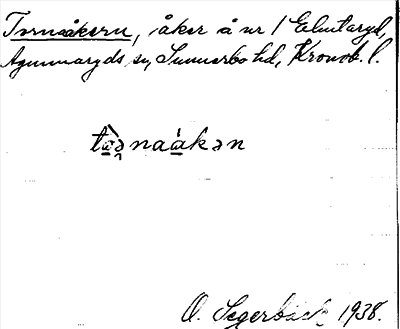 Tornaåkern, åker å nr 1 Elmtaryd,
Agunnaryds sn, Sunnerbo hd, Kronob. l.
O. Segerbäck 1938.